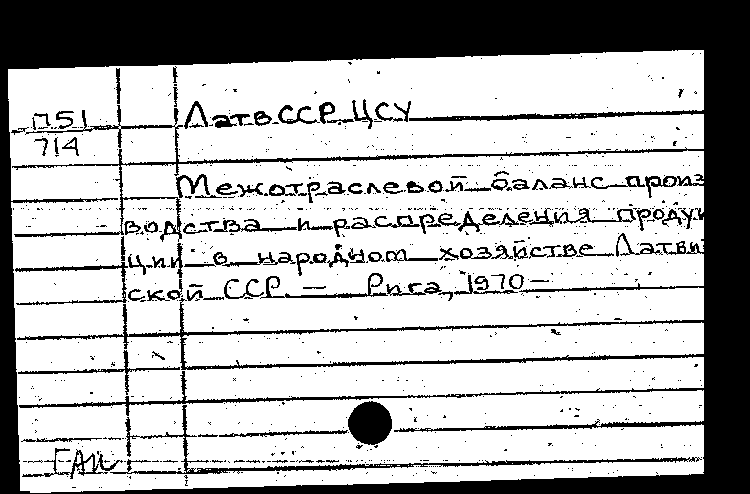 П51 ЛатвССР. ЦСУ
714
Межотраслевой баланс произ
водства и распределения продук
ции в народном хозяйстве Латвий
ской ССР. — Рига, 1970 —